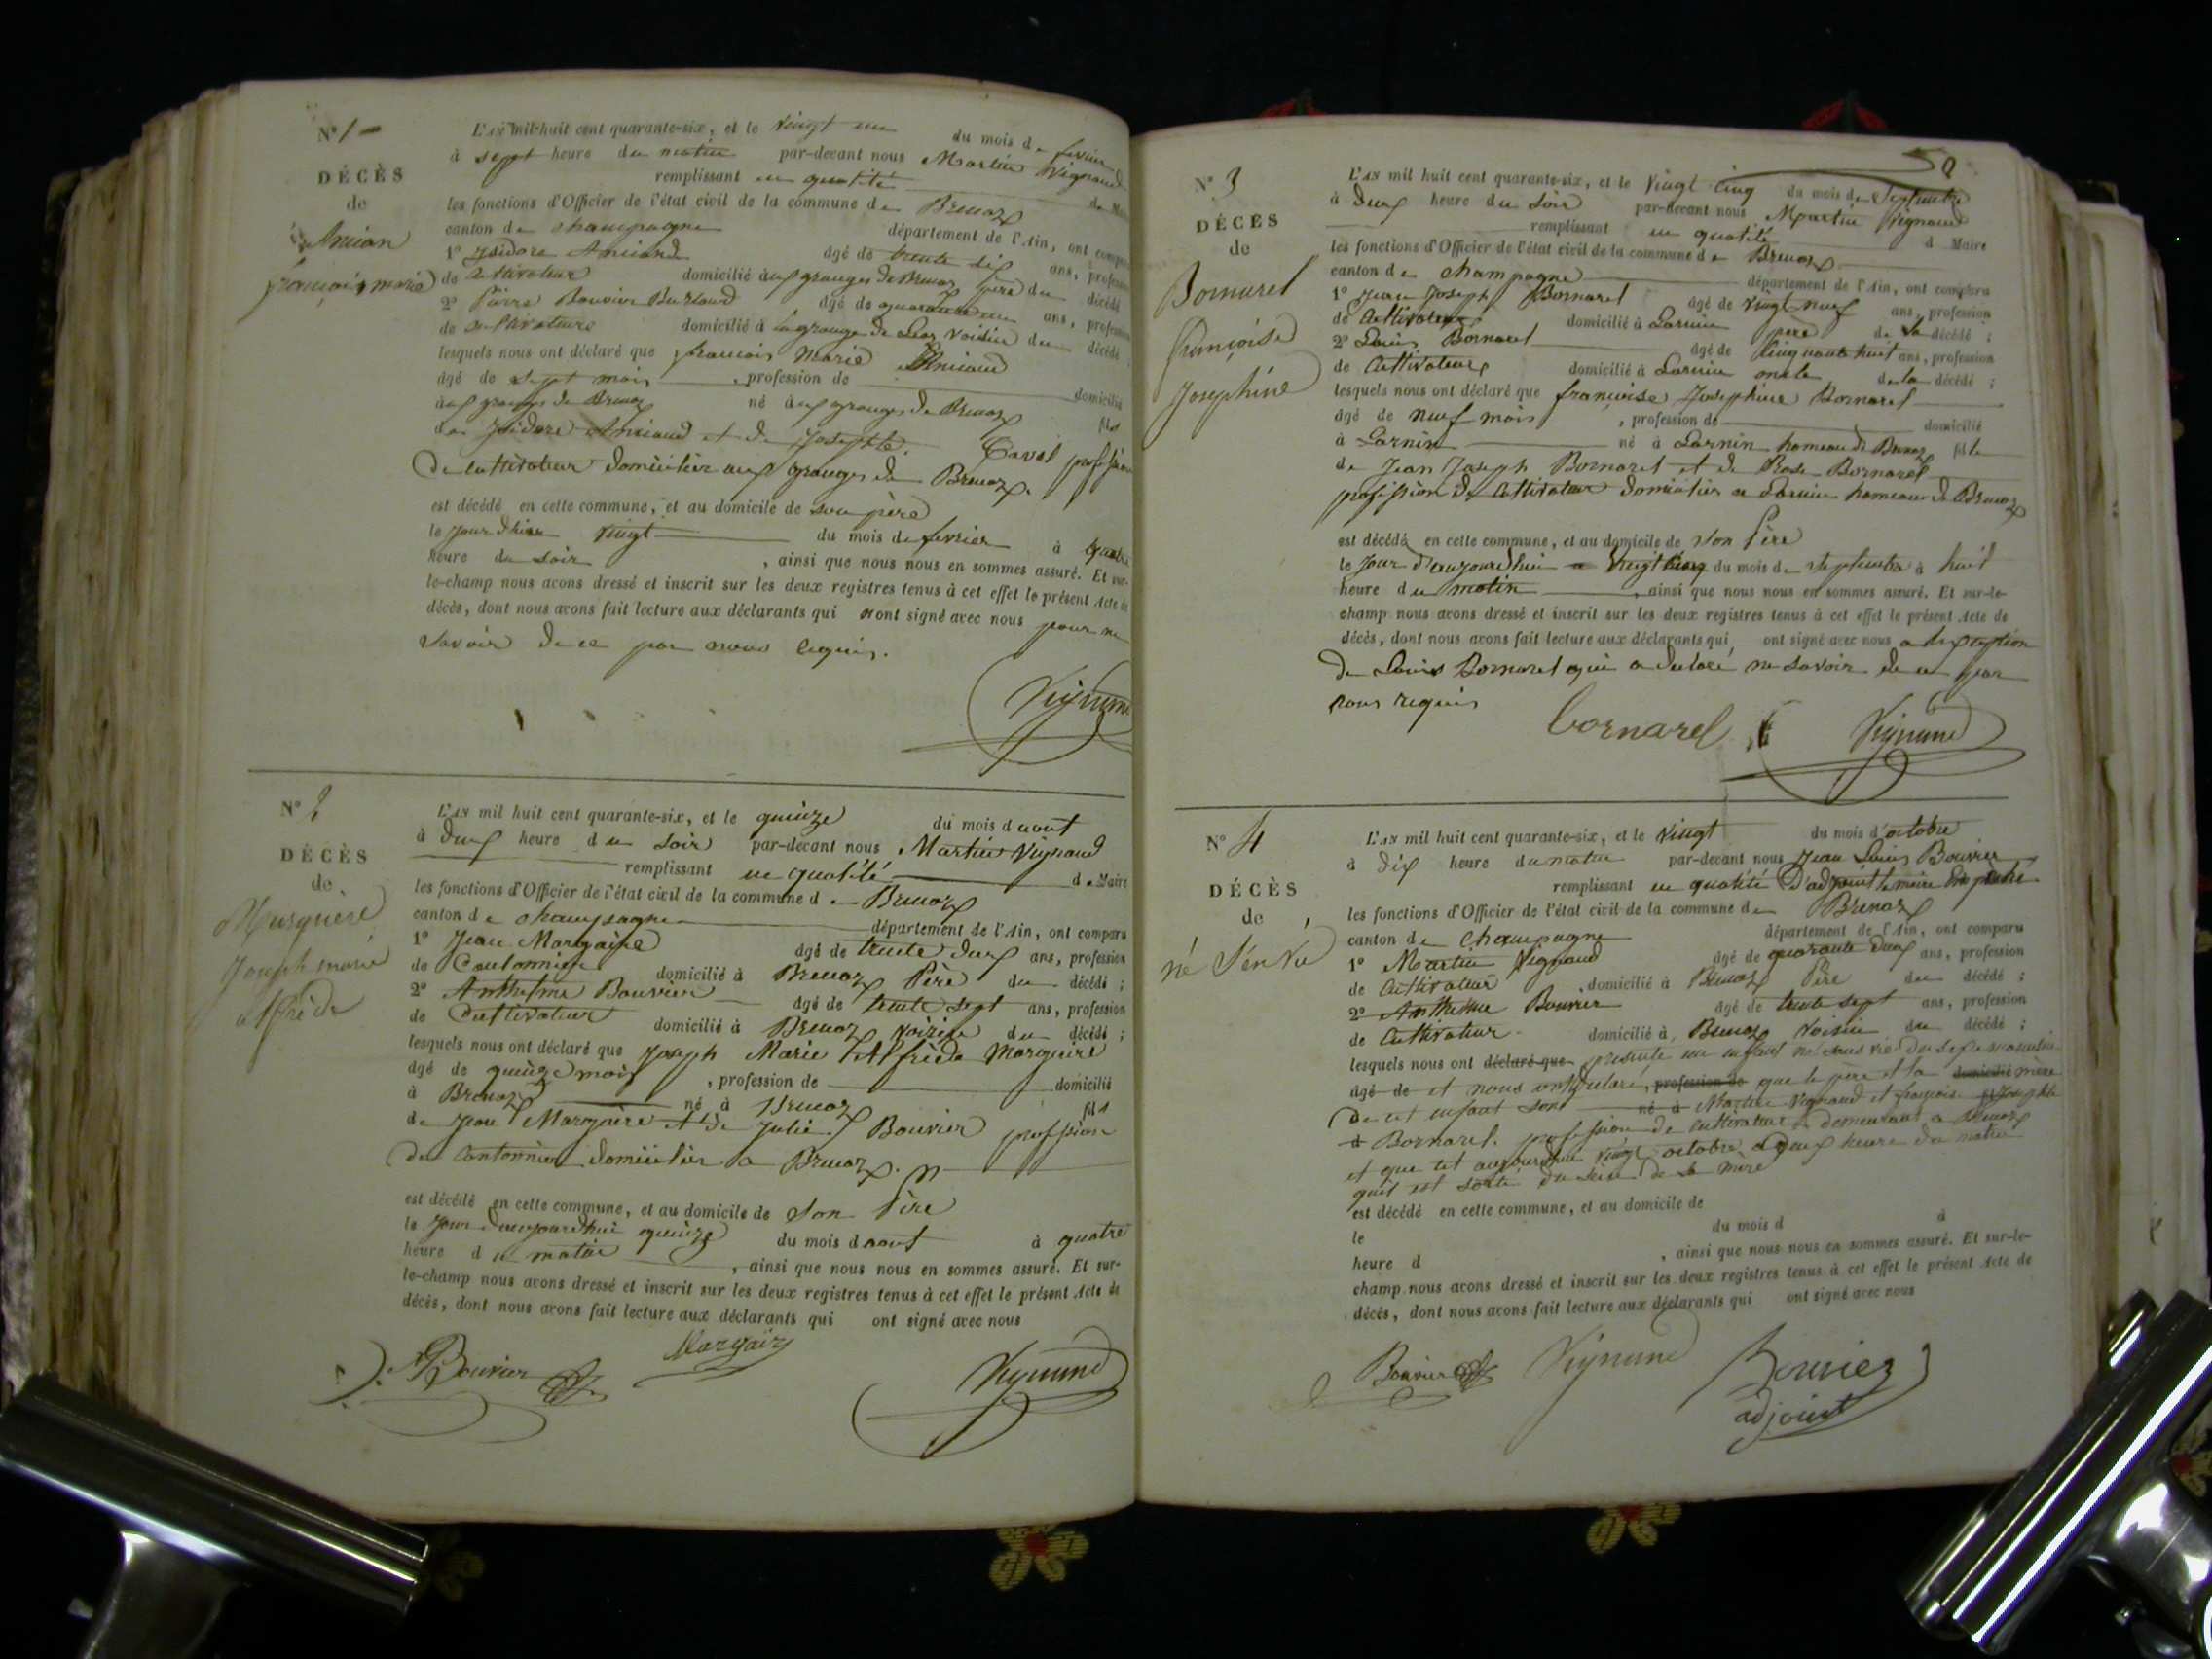 N° 1
DÉCÈS
de
Amian
françois marie
L'AN mil huit cent quarante-six, et le vingt un du mois de fevrier
à sept heure du matin par-devant nous Martin Vignand
remplissant en qualité de Maire
les fonctions d'Officier de l'état civil de la commune de Brenaz
canton de champagne département de l'Ain, ont comparu
1° Isidore Amiand âgé de trente six ans, profession
de Cultivateur domicilié aux granges de Brenaz père du décédé
2° Pierre Bouvier Burland âgé de quarante un ans, profession
de Cultivateur domicilié à la grange de voisin du décédé
lesquels nous ont déclaré que françois Marie Amiand
âgé de sept mois , profession de domicilié
aux granges de Brenaz né aux granges de Brenaz fils
de Isidore Amiaud et de Josephte Caval profession
De cultivateur domiciliés aux granges de Brenaz.
est décédé en cette commune, et au domicile de son père
le jour d'hier vingt du mois de fevrier à quatre
heure du soir , ainsi que nous nous en sommes assuré. Et sur-
le-champ nous avons dressé et inscrit sur les deux registres tenus à cet effet le présent Acte de
décès, dont nous avons fait lecture aux déclarants qui n'ont signé avec nous pour ne
savoir de ce par nous requis.
Vignand
N° 2
DÉCÈS
de
Marguère
Joseph marie
alfrède
L'AN mil huit cent quarante-six, et le quinze du mois d aout
à Deux heure du soir par-devant nous Martin Vignand
remplissant en qualité de Maire
les fonctions d'Officier de l'état civil de la commune de Brenaz
canton de champagne département de l'Ain, ont comparu
1° Jean Margaire âgé de trente deux ans, profession
de Cantonnier domicilié à Brenaz Père du décédé ;
2° Anthelme Bouvier âgé de trente sept ans, profession
de Cultivateur domicilié à Brenaz voizin du décédé ;
lesquels nous ont déclaré que Joseph Marie Alfrède Margaire
âgé de quinze mois , profession de domicilié
à Brenaz né à Brenaz fils
de Jean Margaire et de Julie Bouvier profession
De Cantonnier domiciliés a Brenaz.
est décédé en cette commune, et au domicile de Son Père
le Jour daujourdhui quinze du mois d aout à quatre
heure du matin , ainsi que nous nous en sommes assuré. Et sur-
le-champ nous avons dressé et inscrit sur les deux registres tenus à cet effet le présent Acte de
décès, dont nous avons fait lecture aux déclarants qui ont signé avec nous
Bouvier Margair Vignand
50
N° 3
DÉCÈS
de
Bornarel
françoise
Josephine
L'AN mil huit cent quarante-six, et le Vingt cinq du mois de Septembre
à Deux heure du soir par-devant nous Martin Vignand
remplissant en qualité d Maire
les fonctions d'Officier de l'état civil de la commune de Brenaz
canton de champagne département de l'Ain, ont comparu
1° Jean Joseph Bornarel âgé de vingt neuf ans, profession
de Cultivateur domicilié à Larnin père de la décédé ;
2° Louis Bornarel âgé de Cinquante huit ans, profession
de Cultivateur domicilié à Larnin oncle de la décédé ;
lesquels nous ont déclaré que françoise Josephine Bornarel
âgé de neuf mois , profession de domicilié
à Larnin né à Larnin hameau de Brenaz fille
de Jean Joseph Bornarel et de Rose Bornarel
profession de Cultivateur domiciliés a Larnin hameau de Brenaz
est décédé en cette commune, et au domicile de Son Père
le Jour d'aujourdhui vingt cinq du mois de septembre à huit
heure du matin , ainsi que nous nous en sommes assuré. Et sur-le-
champ nous avons dressé et inscrit sur les deux registres tenus à cet effet le présent Acte de
décès, dont nous avons fait lecture aux déclarants qui ont signé avec nous a lexception
de Louis Bornarel qui a déclaré ne savoir de ce par
nous requis
bornarel Vignand
N° 4
DÉCÈS
de
né San Vie
L'AN mil huit cent quarante-six, et le vingt du mois d'octobre
à Dix heure du matin par-devant nous Jean Louis Bouvier
remplissant en qualité D'adjoint le maire
les fonctions d'Officier de l'état civil de la commune de Brenaz
canton de Champagne département de l'Ain, ont comparu
1° Martin Vignand âgé de quarante deux ans, profession
de Cultivateur domicilié à Brenaz Père du décédé ;
2° Anthelme Bouvier âgé de trente sept ans, profession
de Cultivateur domicilié à Brenaz Voisin du décédé ;
lesquels nous ont déclaré que présenté un enfant né sans vie du sexe masculin
âgé de et nous ont déclaré, profession de que le père et la domicilié mère
De cet enfant sont né à Martin Vignand et françoise Josephte
d Bornarel. profession de cultivateur demeurant a Brenaz
et que cet aujourdhui vingt octobre a deux heure du matin
quil est sorti du sein de la mère
est décédé en cette commune, et au domicile de
le du mois d à
heure d , ainsi que nous nous en sommes assuré. Et sur-le-
champ nous avons dressé et inscrit sur les deux registres tenus à cet effet le présent Acte de
décès, dont nous avons fait lecture aux déclarants qui ont signé avec nous
Bouvier Vignand Bouvier
adjoint